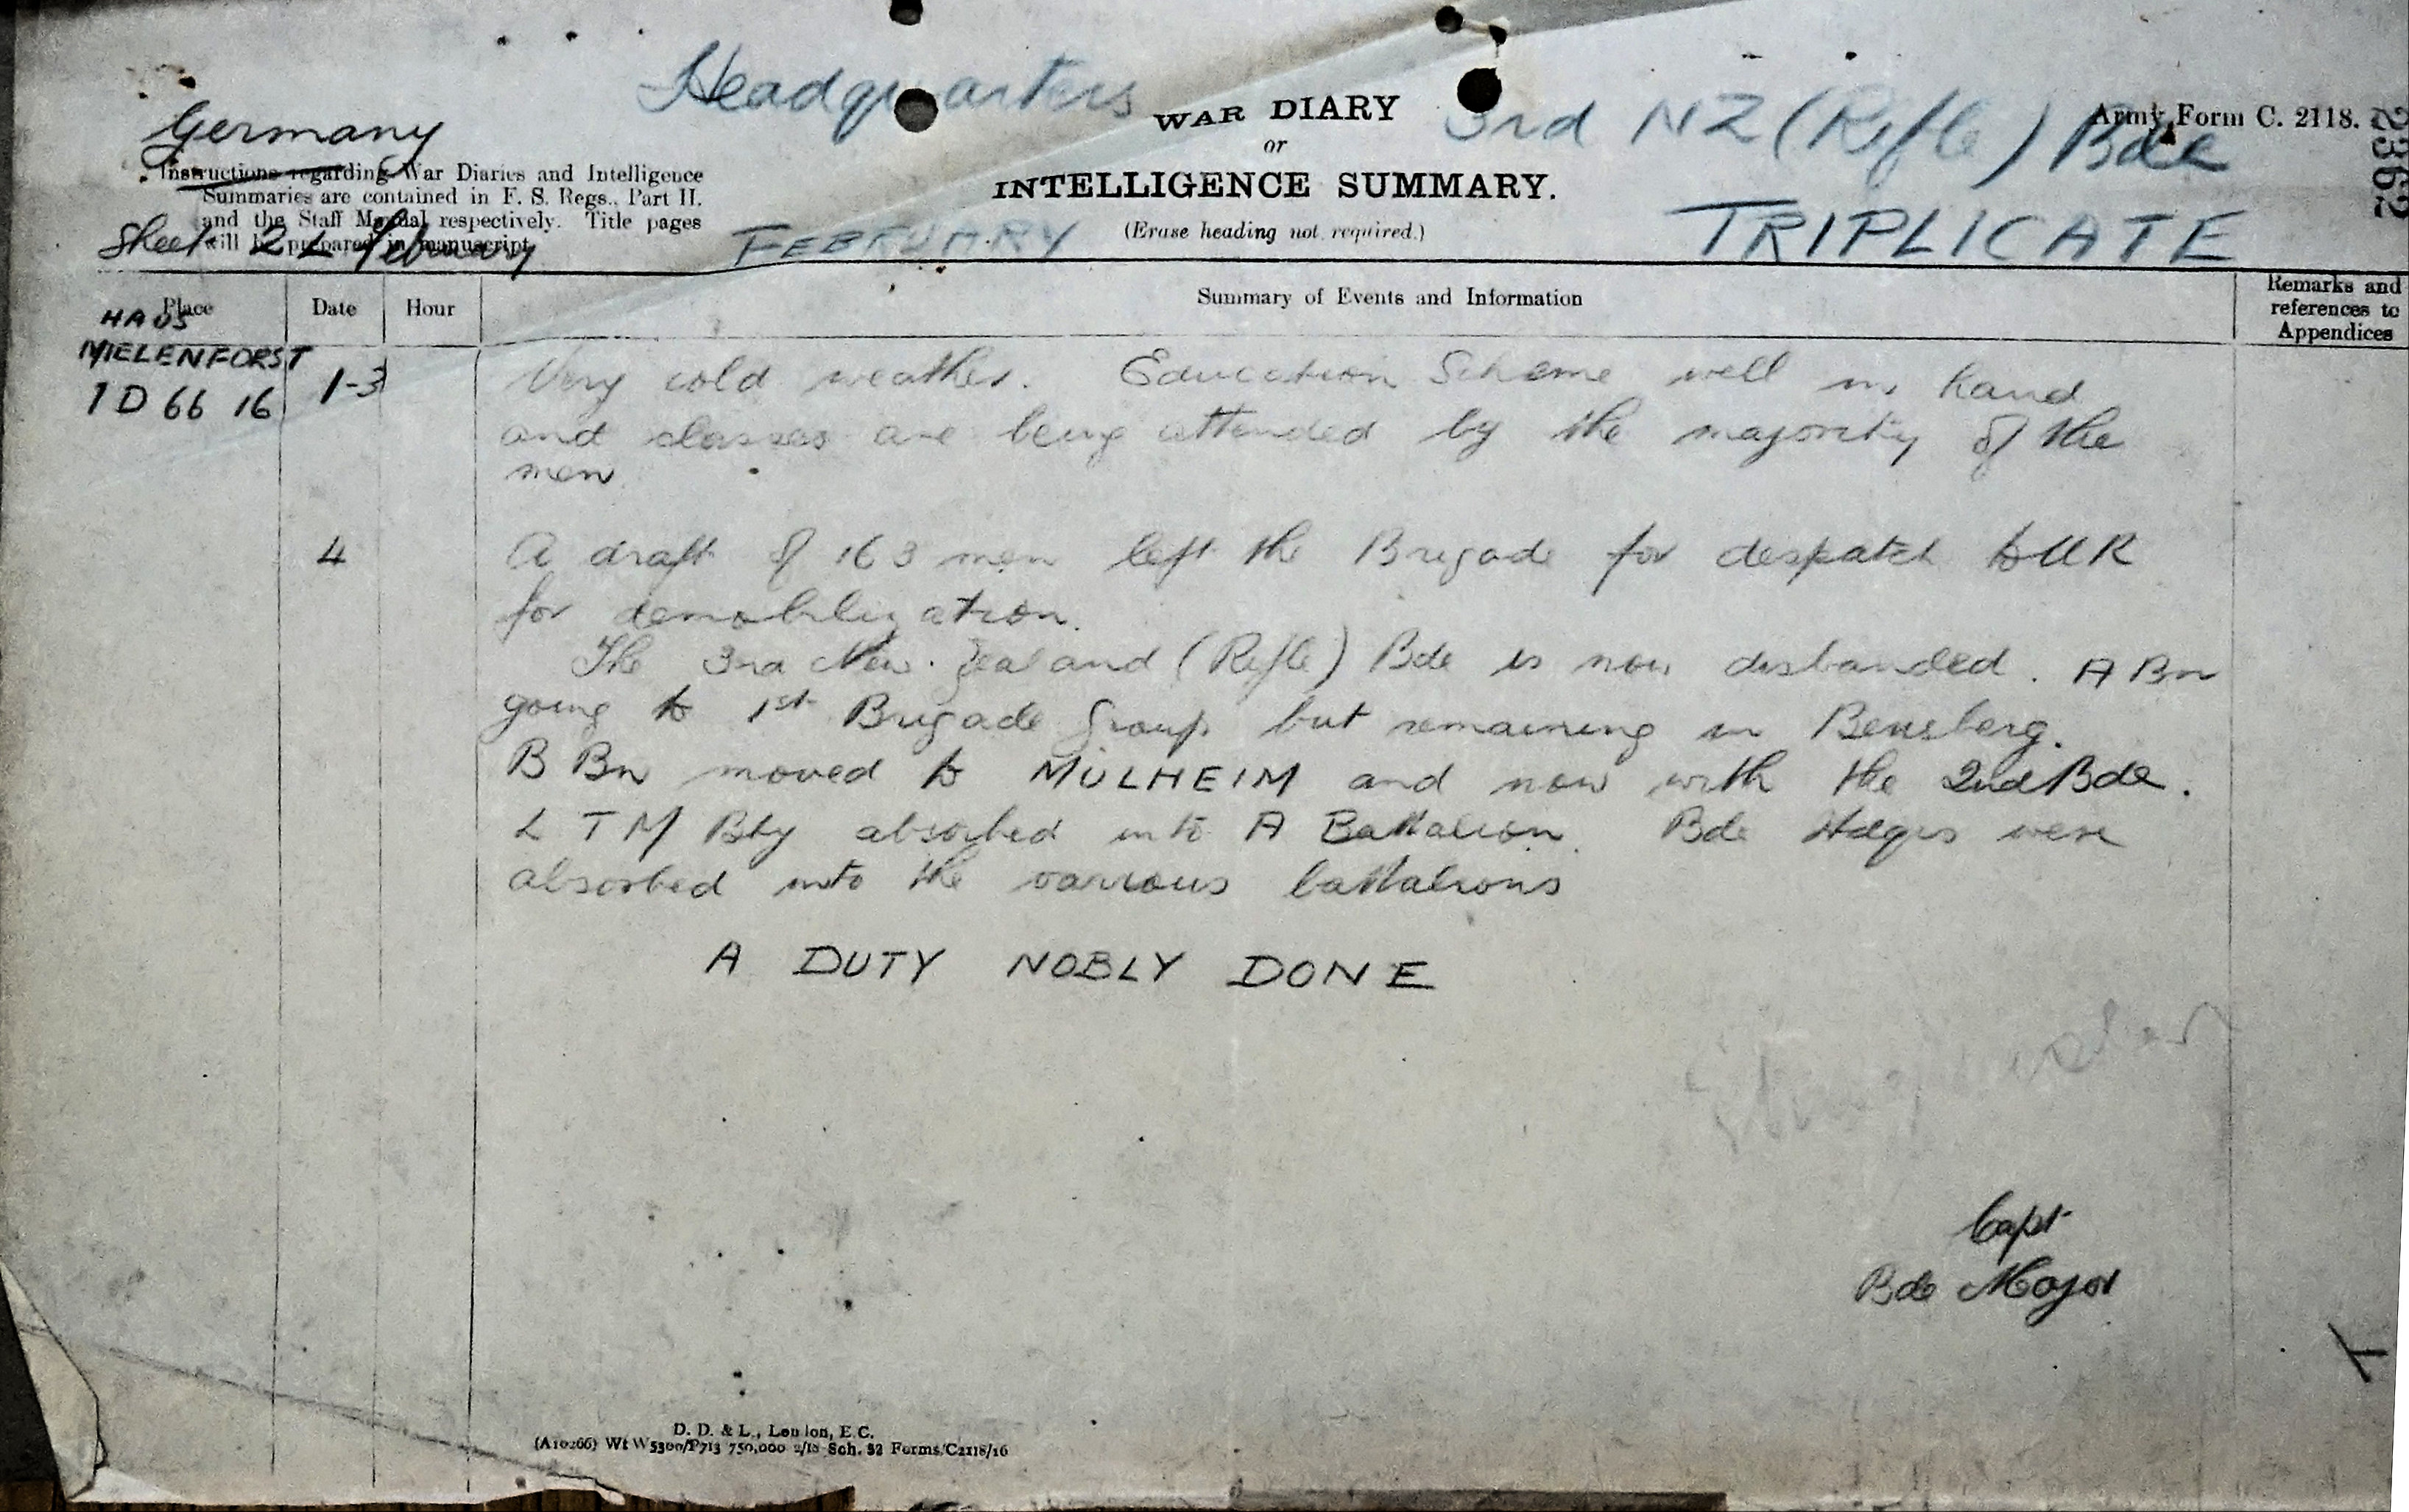 Headquarters 3rd NZ (Rifle) Bde
Germany
WAR DIARY
or
INTELLIGENCE SUMMARY.
(Erase heading not required.)
Army Form C. 2118.
2362
Instructions regarding War Diaries and Intelligence
Summaries are contained in F. S. Regs., Part II.
and the Staff Manual respectively. Title pages
will be prepared in manuscript.
Sheet 2 February
FEBRUARY
TRIPLICATE
Place Date Hour Summary of Events and Information Remarks and
references to
Appendices
HAUS
MIELENFORST
1 D 66 16
1-3 Very cold weather. Education Scheme well in hand
and classes are being attended by the majority of the
men.
4 A draft of 163 men left the Brigade for despatch to UK
for demobilization.
The 3rd New Zealand (Rifle) Bde is now disbanded. A Bn
going to 1st Brigade Group but remaining in Bensberg.
B Bn moved to MÜLHEIM and now with the 2nd Bde.
L T M Bty absorbed into A Battalion. Bde Hdqrs were
absorbed into the various battalions
A DUTY NOBLY DONE
Capt
Bde Major
D. D. & L., London, E.C.
(A10266) Wt W5300/P713 750,000 2/18 Sch. 52 Forms/C2118/16